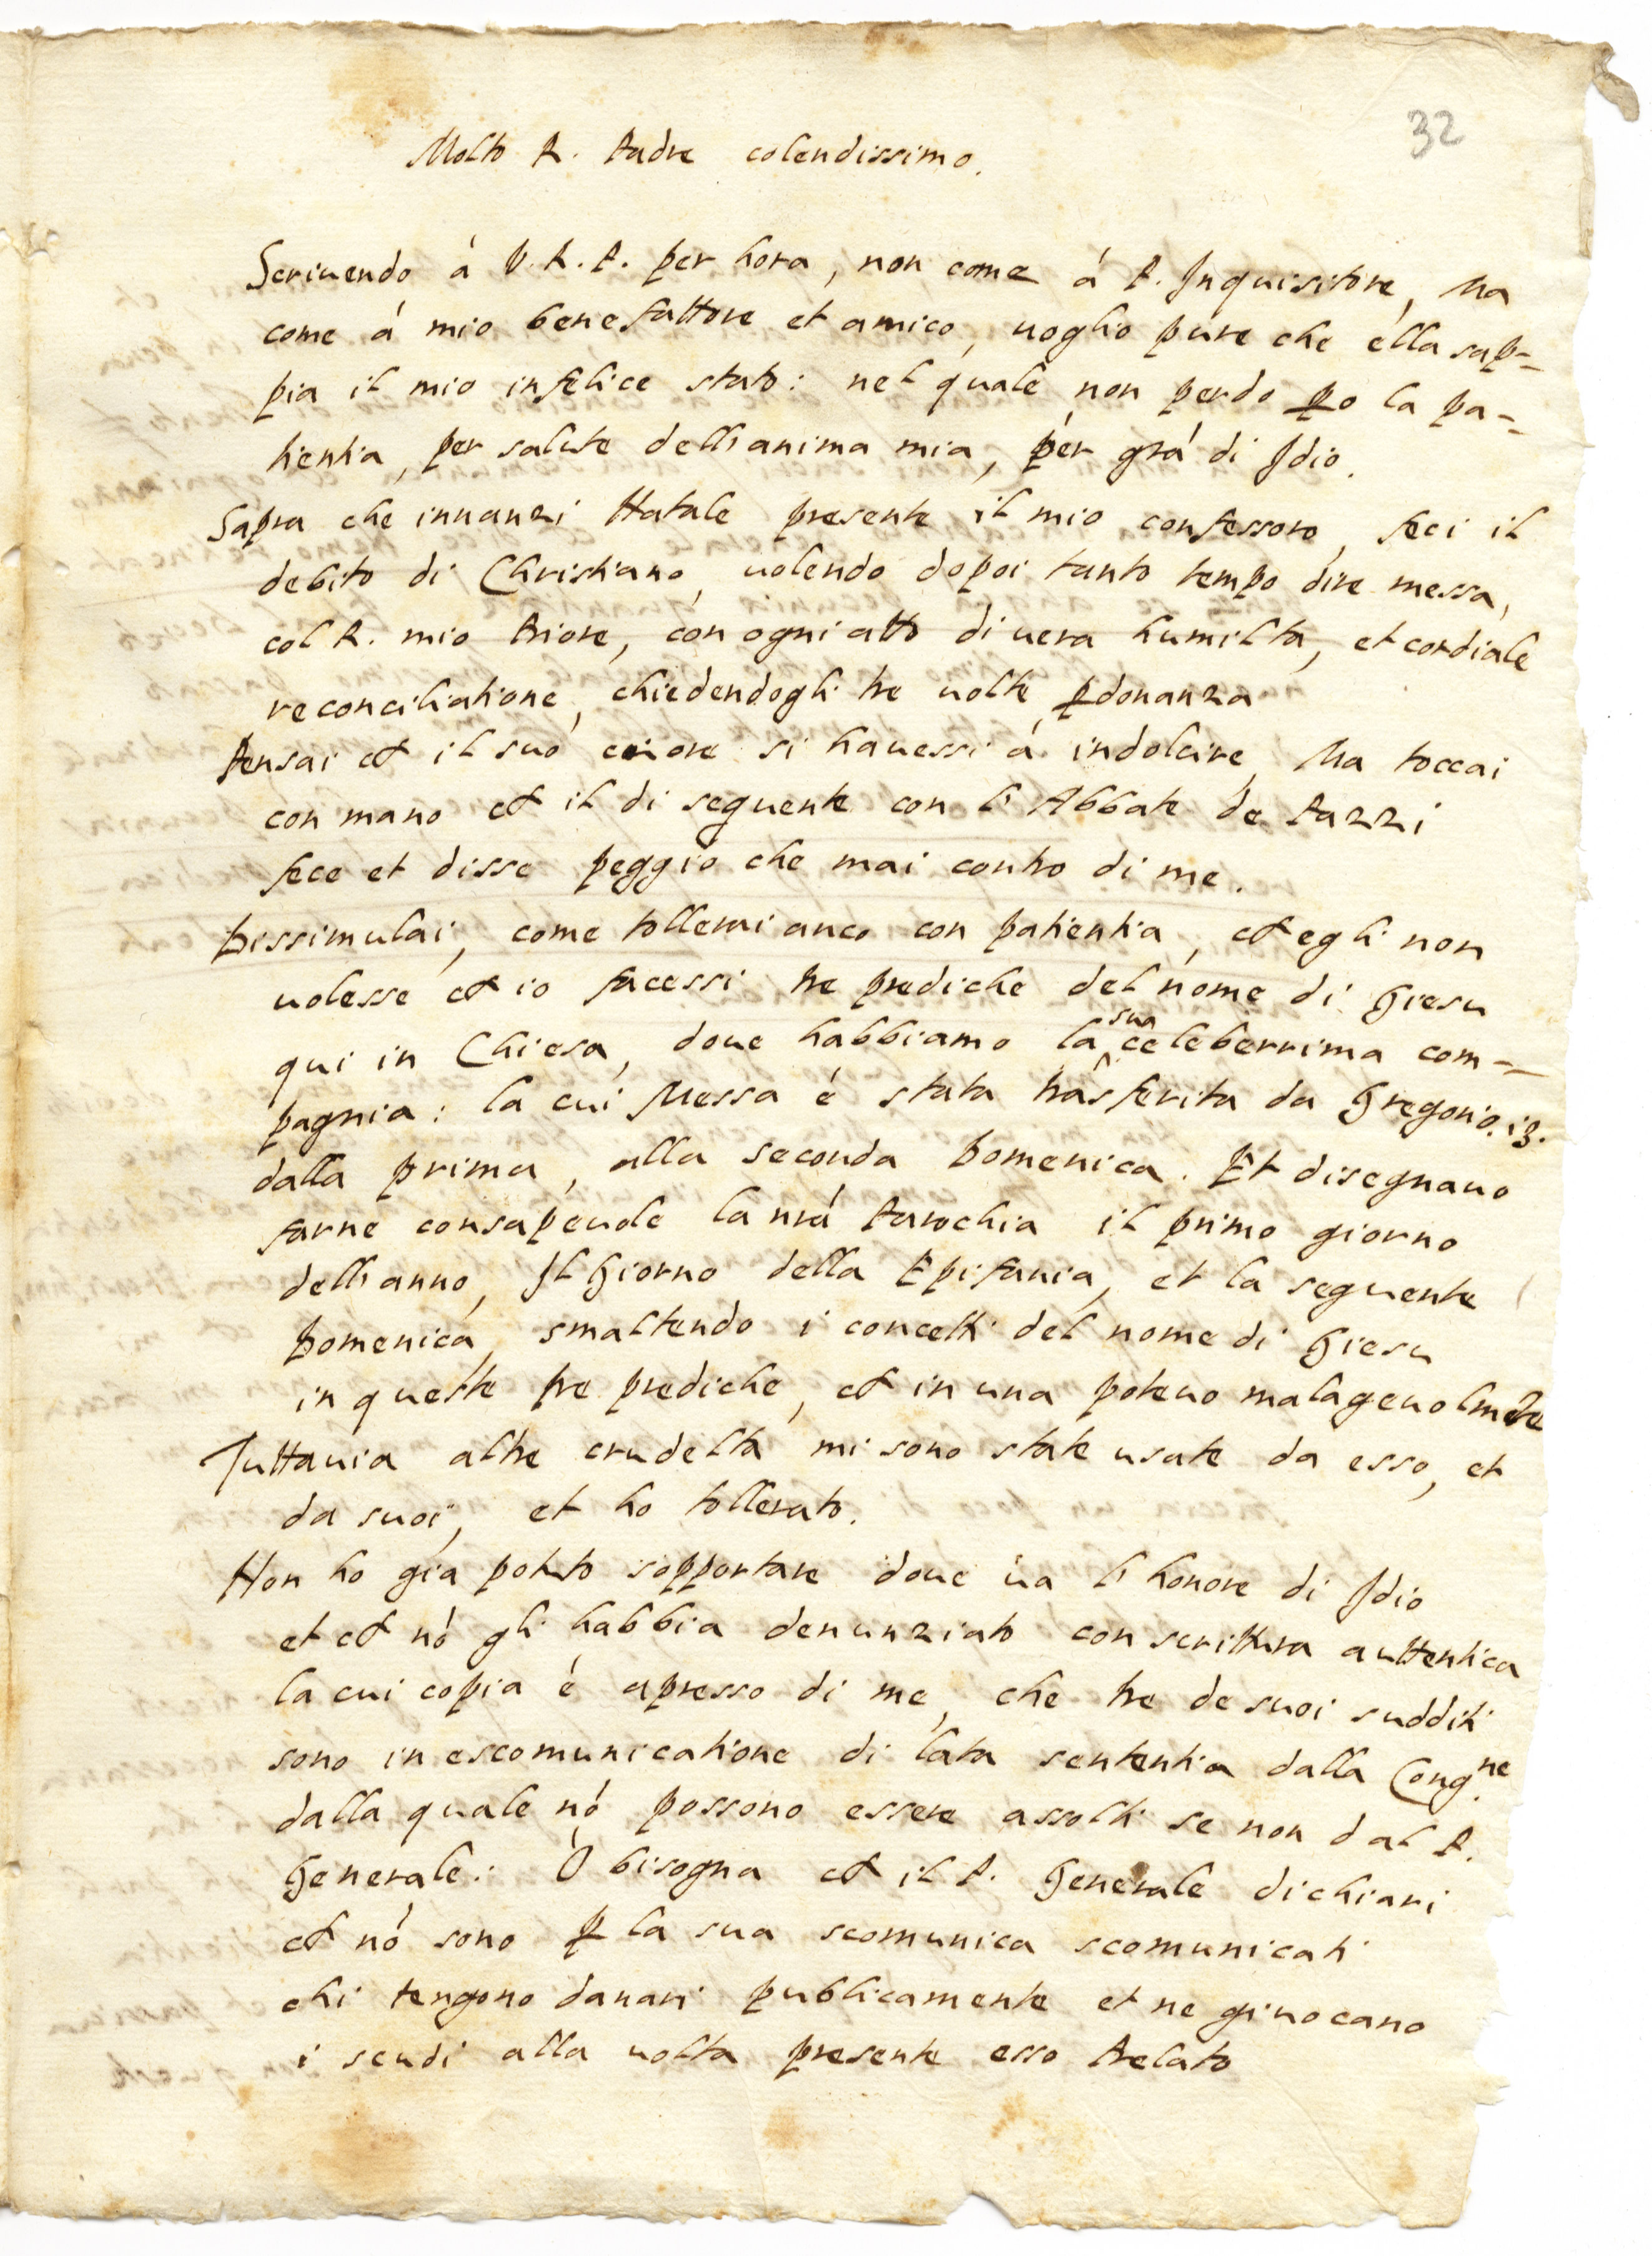 32
Molto R. Padre colendissimo.
Scriuendo á V. R. P. per hora, non come á P. Inquisitore, Ma
come á mio benefattore et amico, uoglio pure che ella sap=
pia il mio infelice stato: nel quale non perdo ꝑo la pa=
tientia, per salute dell'anima mia, per grã di Idio.
Sapra che innanzi Natale presente il mio confessoro, feci il
debito di Christiano, uolendo dopoi tanto tempo dire messa,
col R. mio Priore, con ogni atto di uera humilta, et cordiale
reconciliatione, chiedendogli tre uolte ꝑdonanza
Pensai ch il suo cuore si hauessi á indolcire, Ma toccai
con mano ch il di seguente con l'Abbate de Pazzi
fece et disse peggio che mai contro di me.
Dissimulai, come tollerai anco con patientia, ch egli non
uolesse ch io facessi tre prediche del nome di Giesu
qui in Chiesa, doue habbiamo la sua celeberrima com=
pagnia: la cui Messa é stata trãsferita da Gregorio .13.
dalla prima, alla seconda Domenica. Et disegnauo
farne consapeuole la nrã Parochia il primo giorno
dell'anno, Il Giorno della Epifania, et la seguente
Domenica, smaltendo i concetti del nome di Giesu
in queste tre prediche, ch in una poteuo malageuolmẽte
Tuttauia altre crudelta mi sono state usate da esso, et
da suoi, et ho tollerato.
Non ho gia potuto sopportare doue ua l'honore di Idio
et ch nõ gli habbia denunziato con scrittura auttentica
la cui copia é apresso di me, che tre de suoi sudditi
sono in escomunicatione di lata sententia dalla Cong.ne
dalla quale nõ possono essere assolti se non dal P.
Generale: O bisogna ch il P. Generale dichiari
ch nõ sono ꝑ la sua scomunica scomunicati
chi tengono danari publicamente et ne giuocano
i scudi alla uolta presente esso Prelato